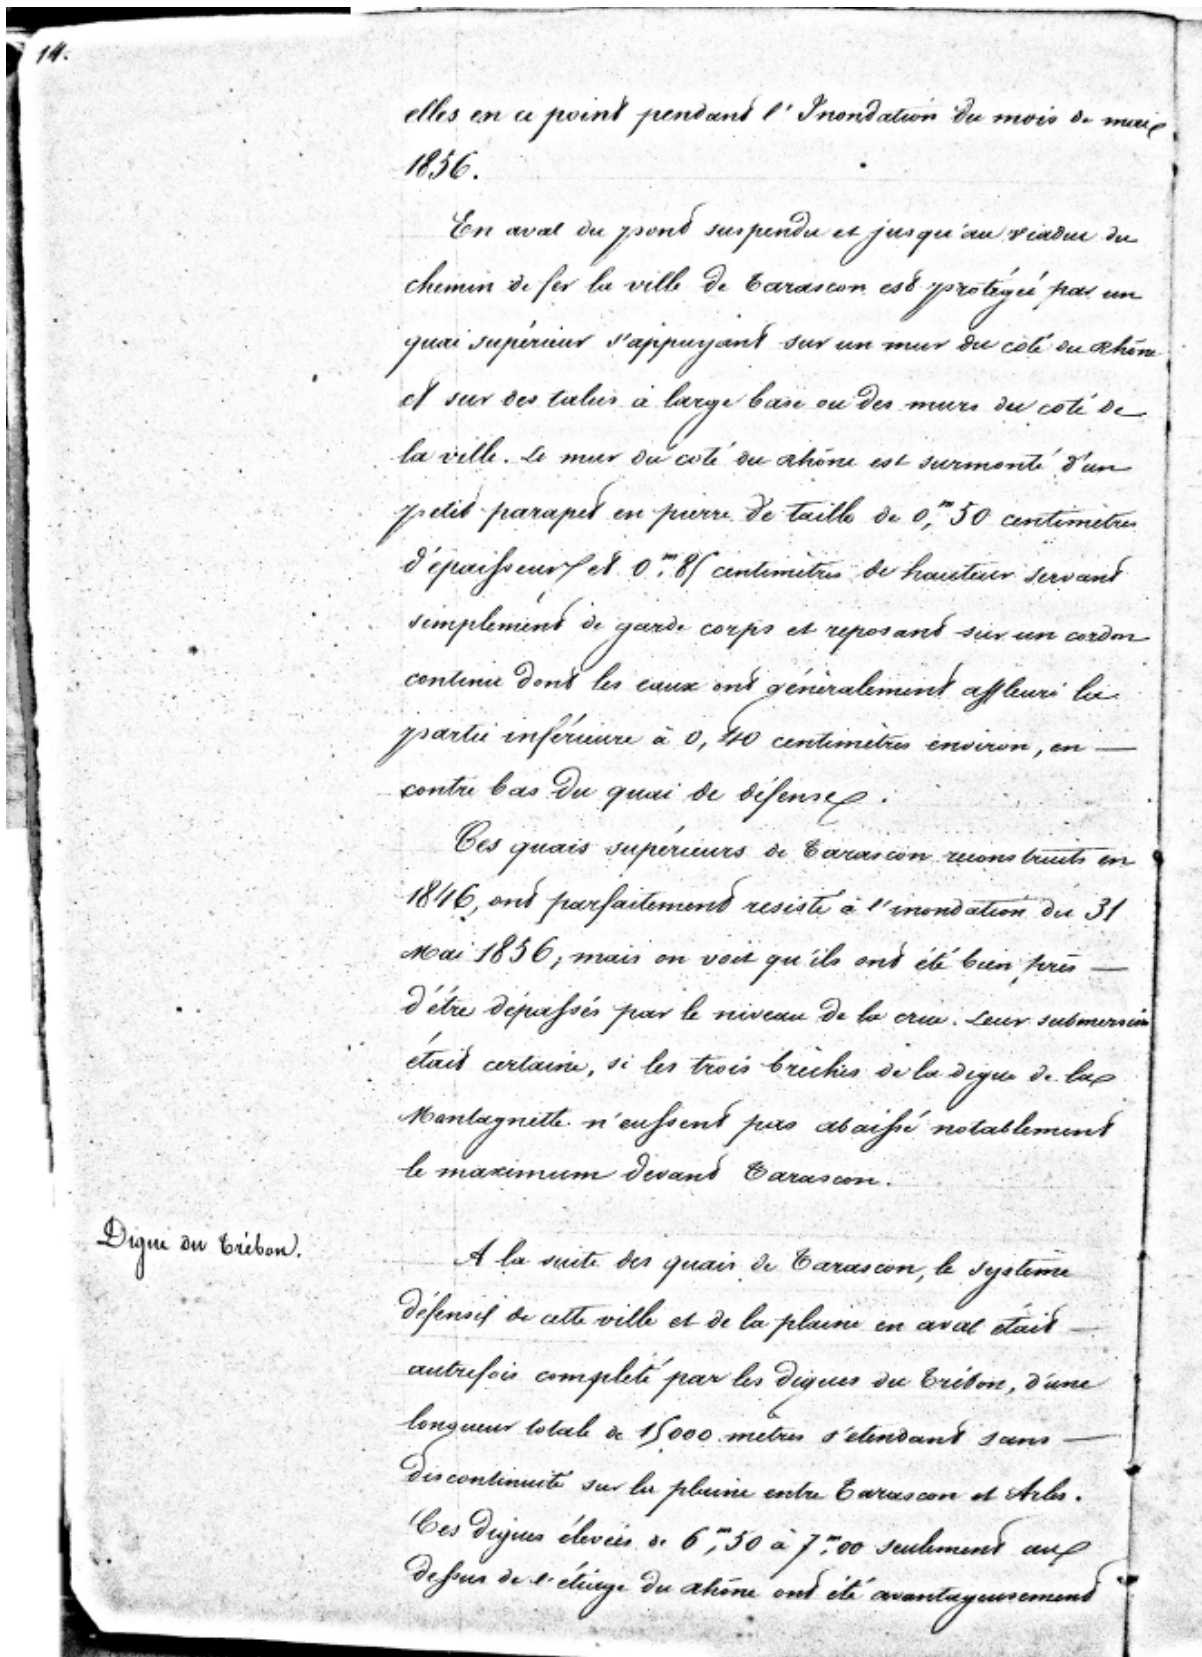 14.
elles en ce point pendant l'Inondation du mois de mai
1856.
En aval du pont suspendu et jusqu'au viaduc du
chemin de fer la ville de Tarascon est protégée par un
quai supérieur s'appuyant sur un mur du côté du Rhône
et sur des talus à large base ou des murs du côté de
la ville. Le mur du côté du Rhône est surmonté d'un
petit parapet en pierre de taille de 0,m50 centimètres
d'épaisseur et 0m,85 centimètres de hauteur servant
simplement de garde corps et reposant sur un cordon
continu dont les eaux ont généralement affleuré la
partie inférieure à 0,40 centimètres environ, en —
contre bas du quai de défense.
Ces quais supérieurs de Tarascon reconstruits en
1846, ont parfaitement resisté à l'inondation du 31
Mai 1856; mais on voit qu'ils ont été bien près —
d'être dépassés par le niveau de la crue. Leur submersion
était certaine, si les trois brêches de la digue de la
Montagnette n'eussent pas abaissé notablement
le maximum devant Tarascon.
Digue du Trébon.
A la suite des quais de Tarascon, le système
défensif de cette ville et de la plaine en aval était —
autrefois completé par les digues du Trébon, d'une
longueur totale de 15000 mètres s'étendant sans —
discontinuité sur la plaine entre Tarascon et Arles.
Ces digues élevées de 6,m50 à 7,m00 seulement au
dessus de l'étiage du Rhône ont été avantageusement